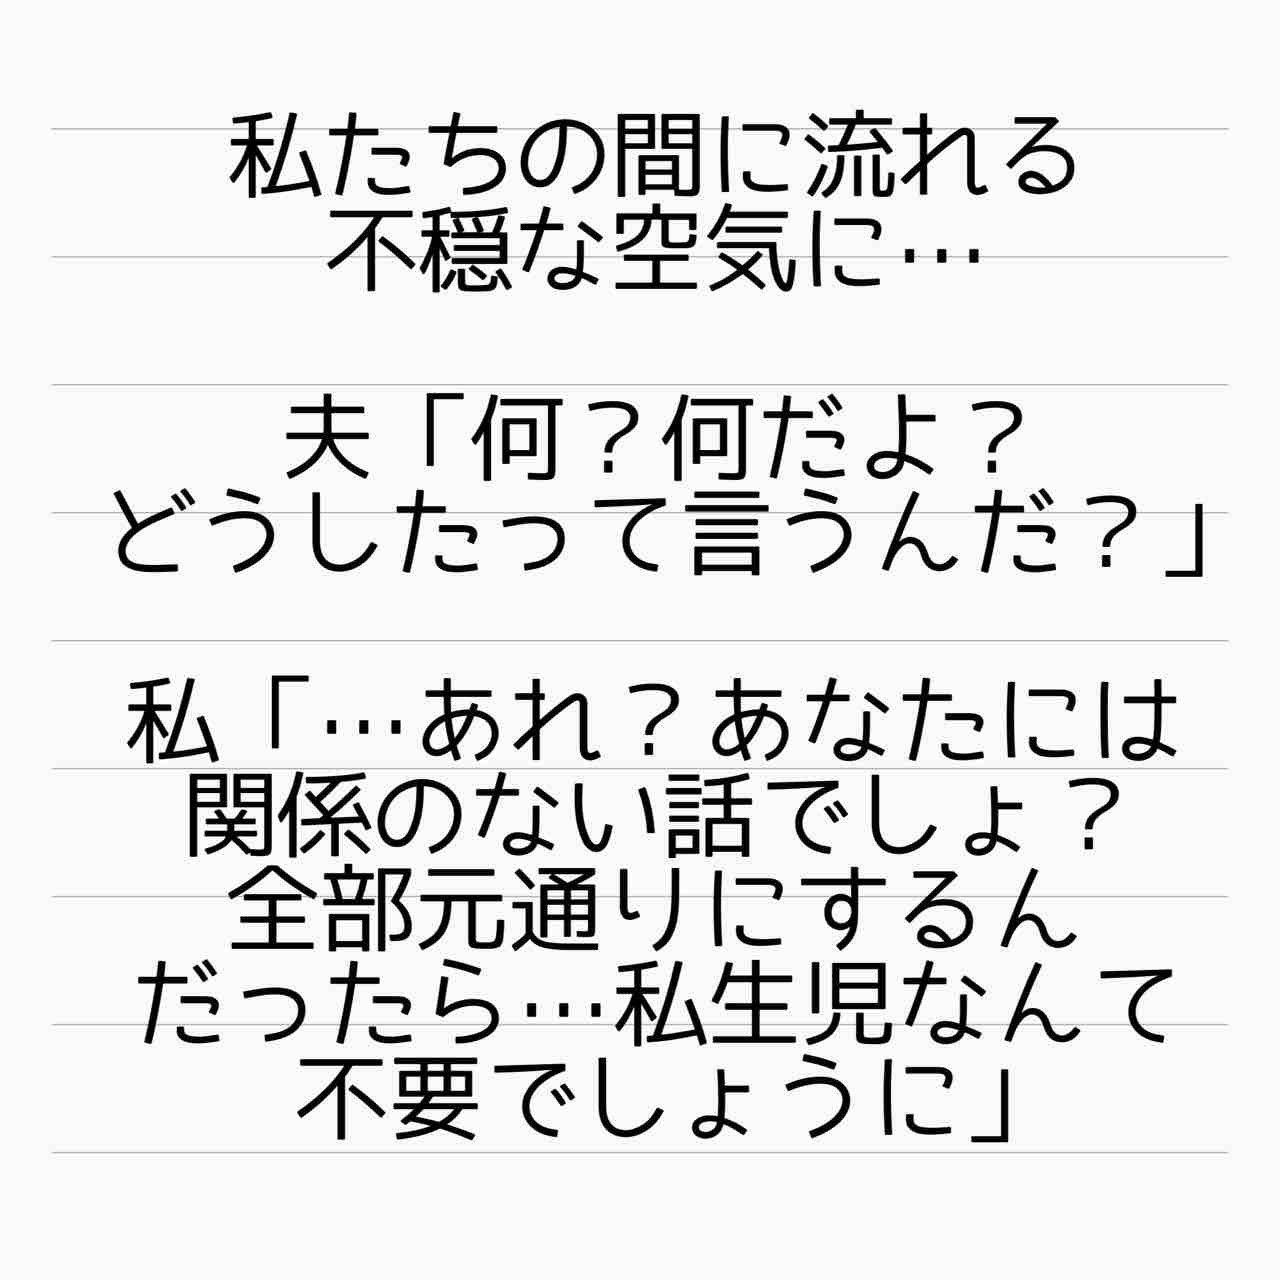 私たちの間に流れる
不穏な空気に…
夫「何？何だよ？
どうしたって言うんだ？」
私「…あれ？あなたには
関係のない話でしょ？
全部元通りにするん
だったら…私生児なんて
不要でしょうに」